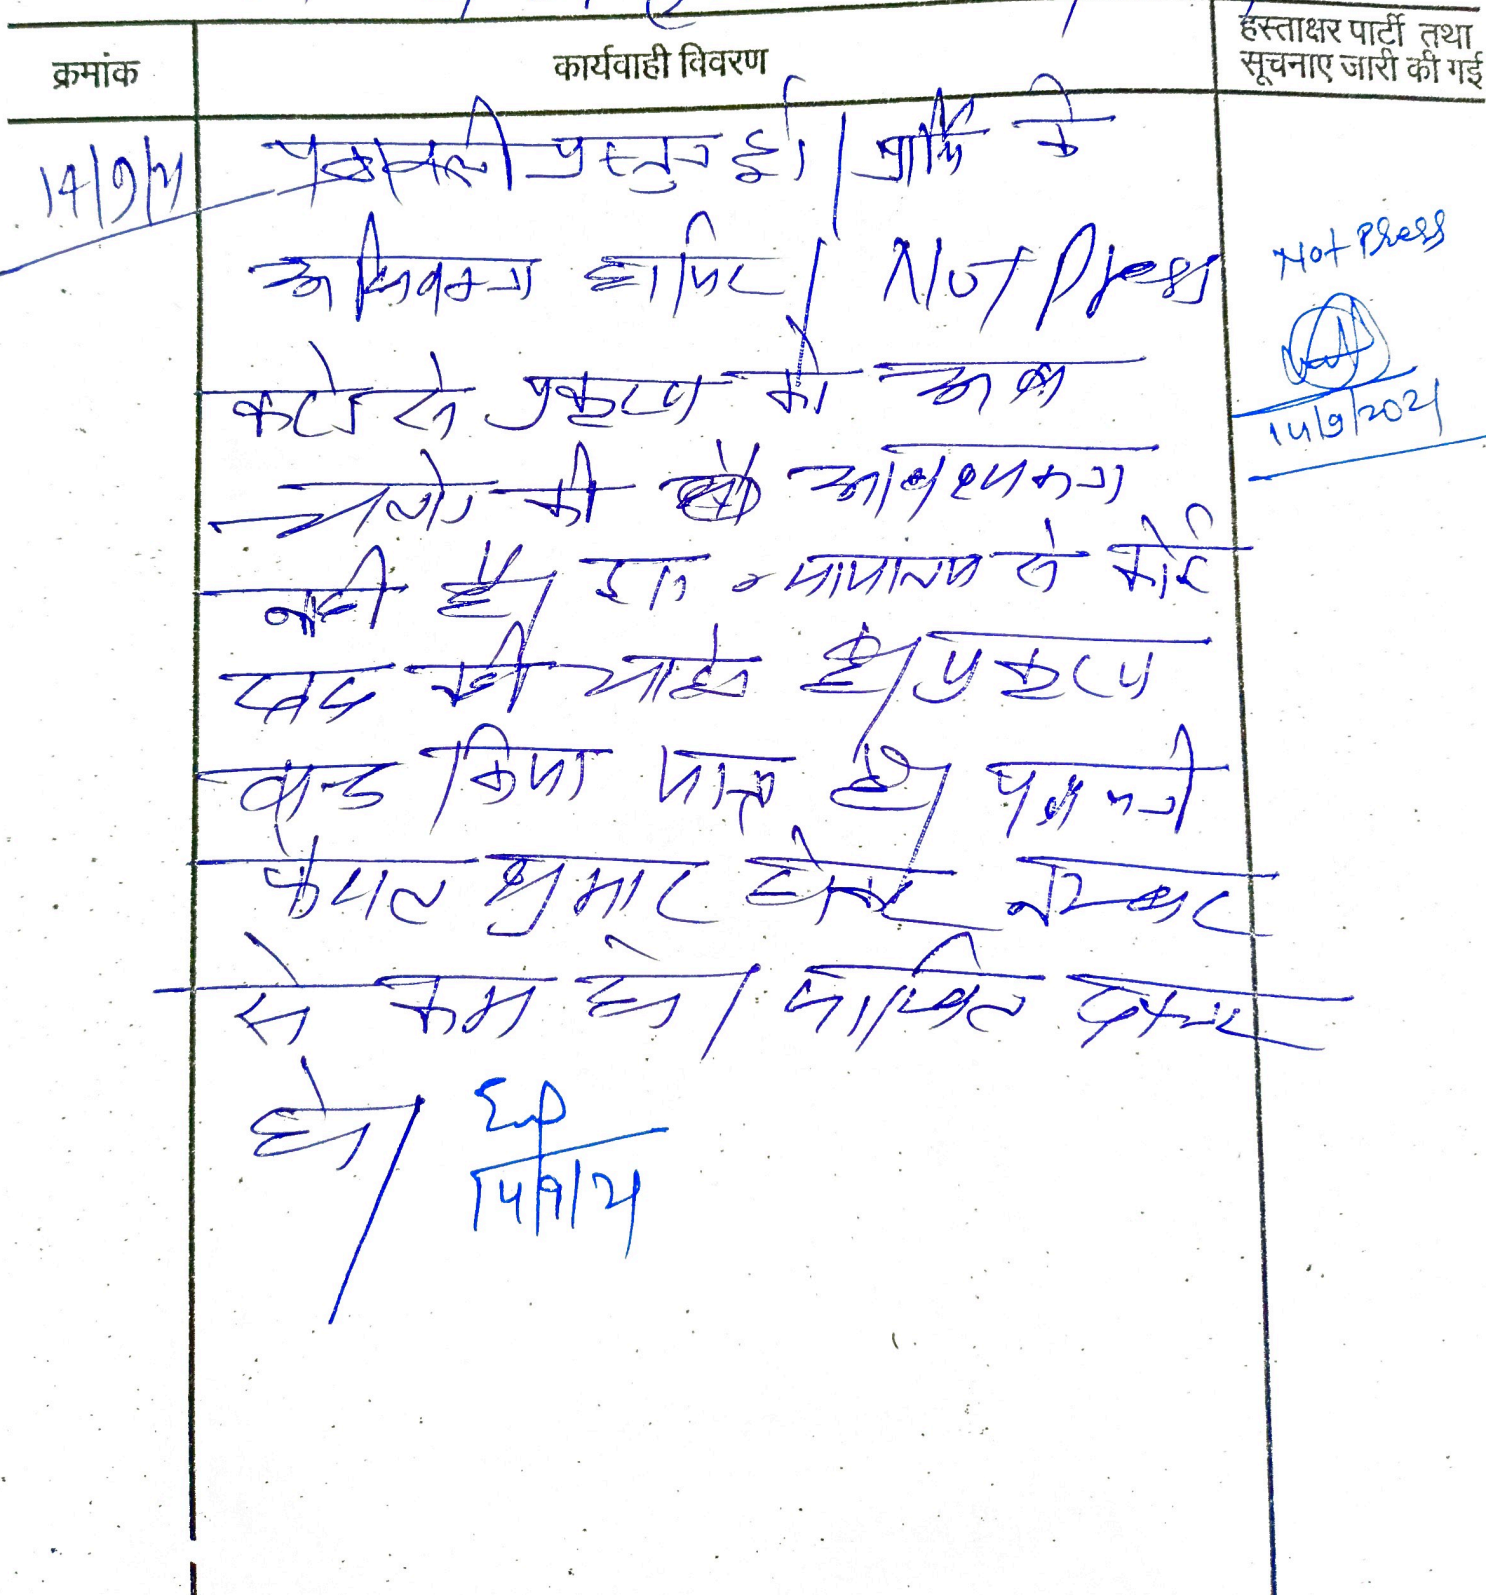 क्रमांक
कार्यवाही विवरण
हस्ताक्षर पार्टी तथा
सूचनाए जारी की गई
14/9/21
पत्रावली प्रस्तुत हुई। प्रार्थी के
अभिवक्ता हाजिर। Not Press
करने से प्रकरण को अब
चलाने की आवश्यकता
नहीं है। इस न्यायालय से कोई
मदद नहीं चाहते है। प्रकरण
बन्द किया जाता है। पत्रावली
फैसल शुमार होकर नम्बर
से कम हो। दाखिल दफ्तर
हो।
14/9/21
Not Press
14/9/2021